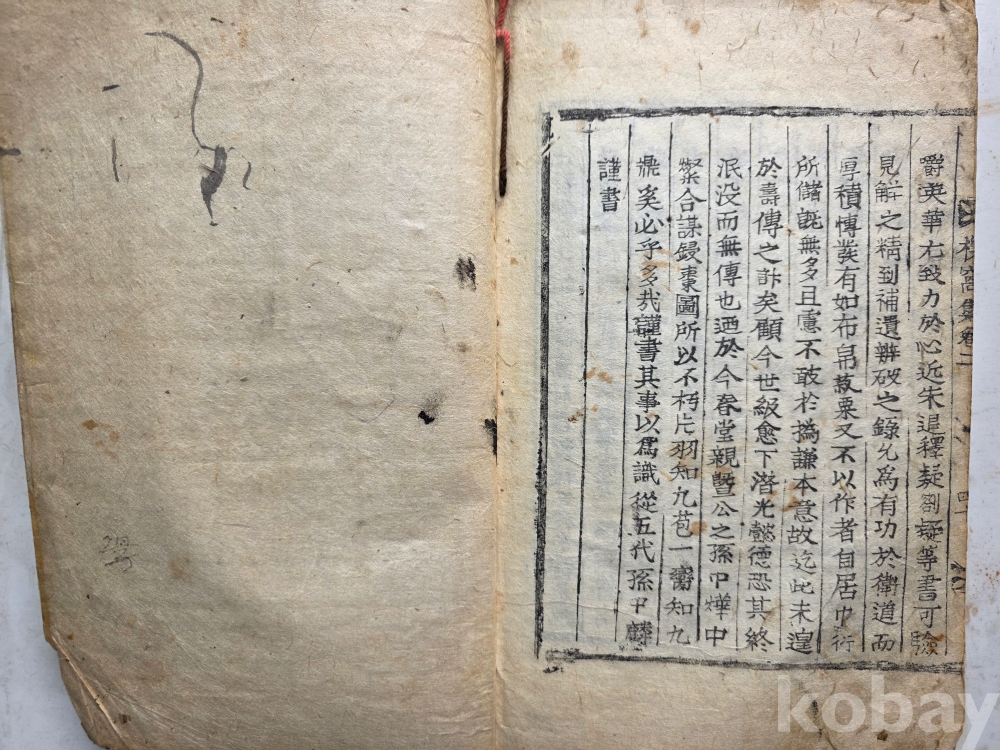 嚼英華尤致力於心近朱退釋疑劄疑等書可驗
見解之精到補遺辨破之錄允爲有功於衛道而
厚積博發有如布帛菽粟又不以作者自居巾衍
所儲旣無多且慮不敢於撝謙本意故迄此未遑
於壽傳之計矣顧今世級愈下潛光懿德恐其終
泯没而無傳也迺於今春堂親曁公之孫中燁中
燦合謀鋟棗圖所以不朽片羽知九苞一臠知九
鼎矣必乎多㦲謹書其事以爲識從五代孫中麟
謹書
窩集卷二
四
kobay